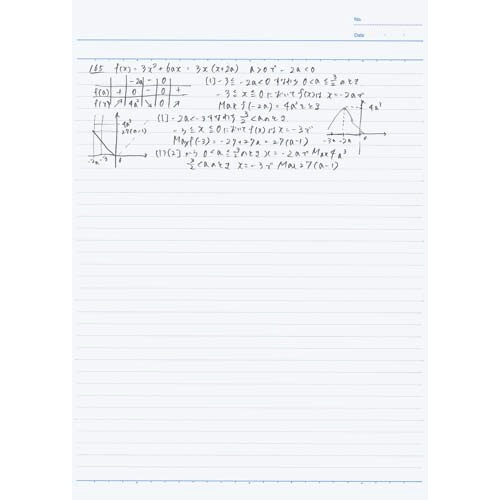 No.
Date
165 f(x) = 3x² + 6ax = 3x(x+2a) a>0で -2a<0
-2a - 0
f'(x) + 0 - 0 +
f(x) ↗ 4a³ ↘ 0 ↗
[1] -3≦-2a<0 すなわち 0<a≦3/2 のとき
-3≦x≦0において f(x)は x=-2aで
Max f(-2a) = 4a³をとる
[1] -2a<-3すなわち 3/2<aのとき
-3≦x≦0において f(x)は x=-3で
Max f(-3) = -27+27a = 27(a-1)
(1)[2]から 0<a≦3/2のとき x=-2aで Max 4a³
3/2<aのとき x=-3で Max 27(a-1)
4a³
27(a-1)
-2a -3 0
4a³
-3 -2a 0